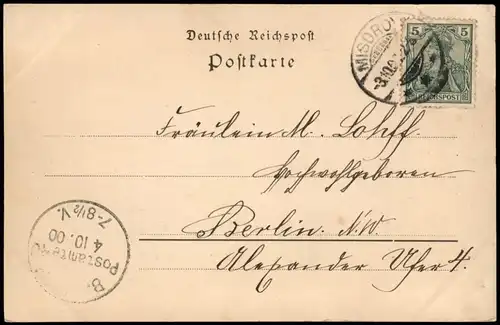 Deutsche Reichspost
Postkarte
MISDROY
3.10.
5 5
REICHSPOST
Fräulein M. Lohff.
Hochwohlgeboren
Berlin. N.W.
Alexander Ufer 4.
7-8½ V.
4.10.00
Postamte 40
B.